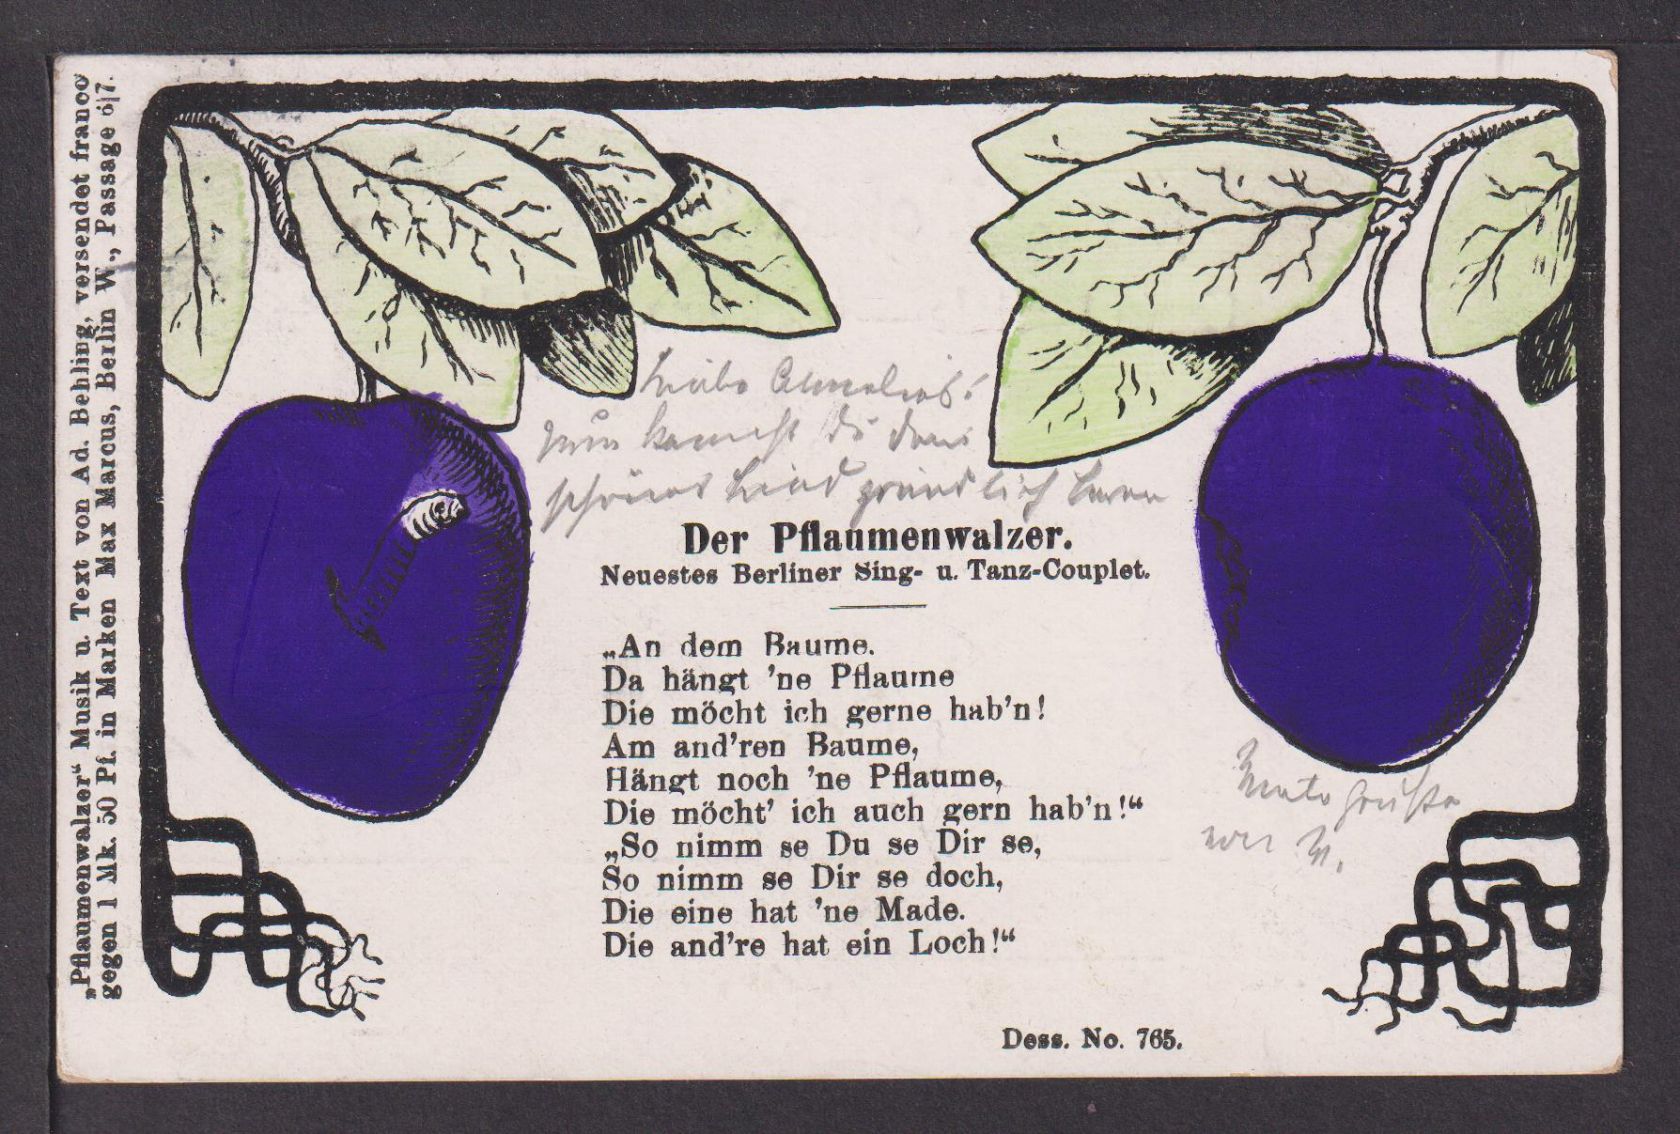 „Pflaumenwalzer“ Musik u. Text von Ad. Behling, versendet franco
gegen 1 Mk. 50 Pf. in Marken Max Marcus, Berlin W., Passage 6|7.
Liebe Annelies!
Nun kannst du das
schöne Lied gründlich lernen
Der Pflaumenwalzer.
Neuestes Berliner Sing- u. Tanz-Couplet.
„An dem Baume.
Da hängt 'ne Pflaume
Die möcht ich gerne hab'n!
Am and'ren Baume,
Hängt noch 'ne Pflaume,
Die möcht' ich auch gern hab'n!“
„So nimm se Du se Dir se,
So nimm se Dir se doch,
Die eine hat 'ne Made.
Die and're hat ein Loch!“
Grüße
von
Dess. No. 765.